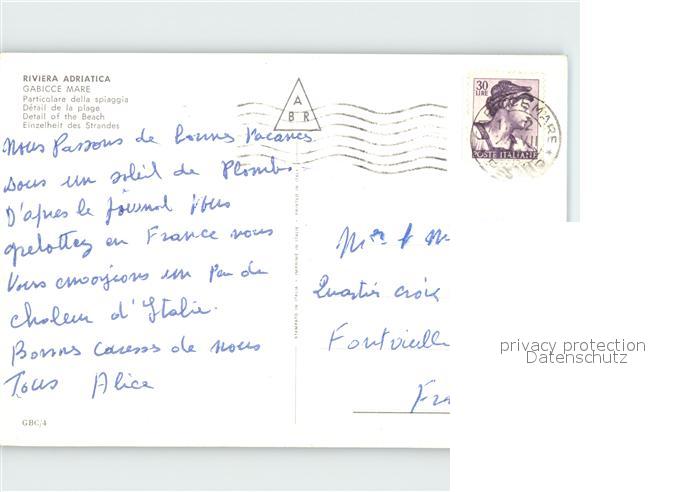 RIVIERA ADRIATICA
GABICCE MARE
Particolare della spiaggia
Détail de la plage
Detail of the Beach
Einzelheit des Strandes
Nous passons de bonnes vacances
sous un soleil de Plombs
D'après le journal vous
grelottez en France nous
vous envoyons un peu de
chaleur d'Italie.
Bonnes caresses de nous
Tous Alice
GBC/4
A
B R
30
LIRE
POSTE ITALIANE
MARE
Mme & M
Quartier croix
Fontvieille
Fra
privacy protection
Datenschutz